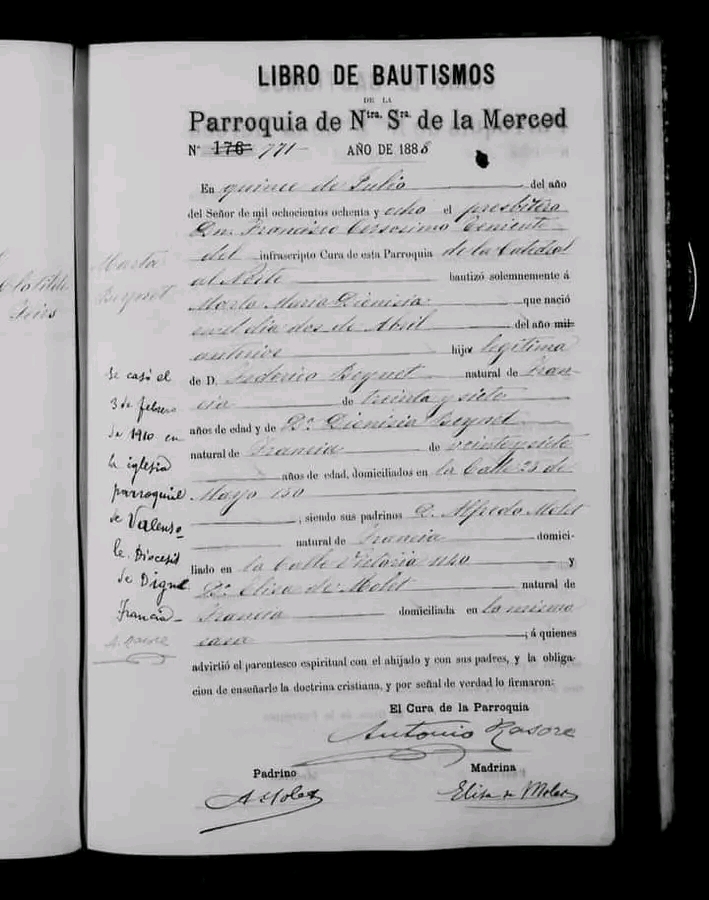 LIBRO DE BAUTISMOS
DE LA
Parroquia de Ntra. Sra. de la Merced
Nº 176 771 AÑO DE 1888
En quince de Julio del año
del Señor de mil ochocientos ochenta y ocho el presbítero
Dn. Francisco Teniente
del infrascripto Cura de esta Parroquia de la Catedral
al Norte bautizó solemnemente á
Marta Maria Dionisia que nació
en el dia dos de Abril del año mil
anterior hija legitima
de D. Federico Beynet natural de Fran-
cia de treinta y siete
años de edad y de Da. Dionisia Beynet
natural de Francia de veinte y siete
años de edad, domiciliados en la Calle 25 de
Mayo 150
, siendo sus padrinos D. Alfredo Molet
natural de Francia domici-
liado en la Calle Victoria y
Da. Elisa de Molet natural de
Francia domiciliada en la misma
casa ; á quienes
advirtió el parentesco espiritual con el ahijado y con sus padres, y la obliga-
cion de enseñarle la doctrina cristiana, y por señal de verdad lo firmaron:
El Cura de la Parroquia
Antonio Rasore
Padrino Madrina
A Molet Elisa de Molet
Marta
Beynet
Se casó el
3 de febrero
de 1910 en
la iglesia
parroquial
de Valenso-
le. Diocesis
de Digne
Francia-
A. Rasore
Clotilde